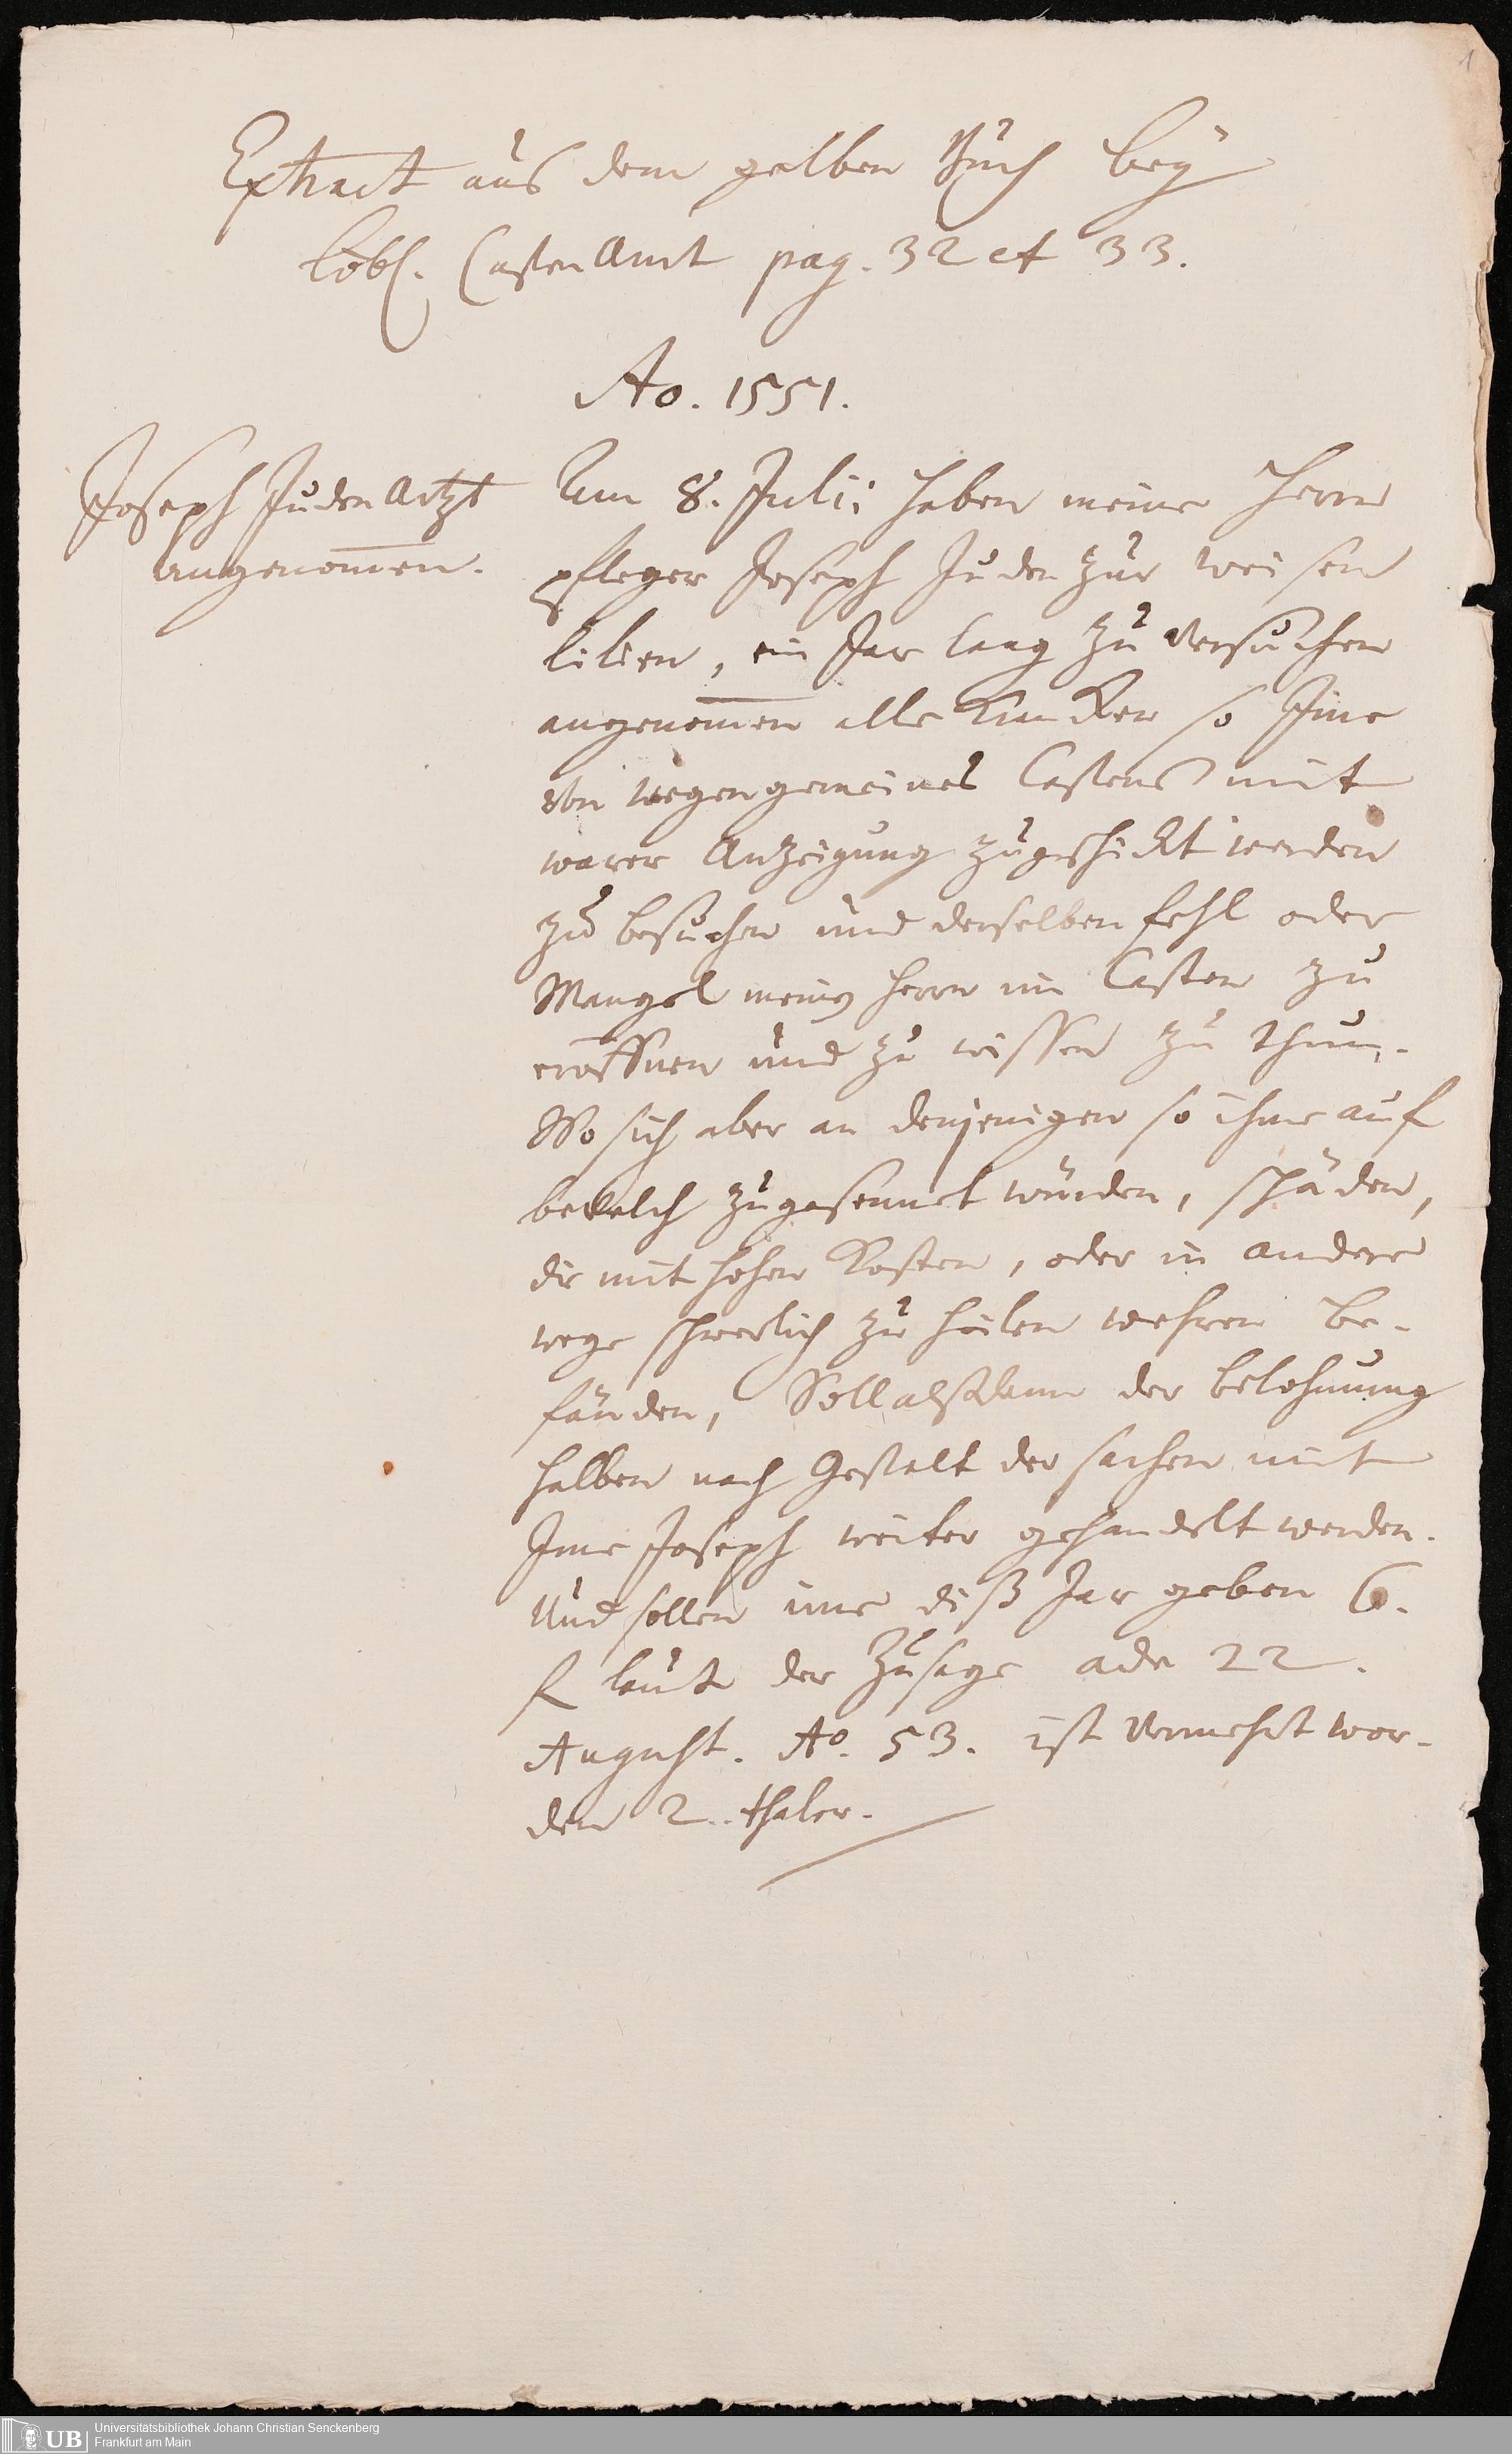 1
Extract aus dem gelben Buch beÿ
löbl. CastenAmt pag. 32 et 33.
Ao. 1551.
Joseph Juden Artzt
angenom̅en.
Am 8. Julii haben meine Herrn
pfleger Joseph Juden zur weisen
lilien, ein Jar lang zu versuchen
angenom̅en alle Krancken so Jme
von wegen gemeines Castens mit
warer Anzeigung zugeschickt werden
zu besuchen und derselben fehl oder
Mangel meinen herrn im Casten zu
eröffnen und zu wissen zu thun.
Wo sich aber an denjenigen so ihme auf
bevelch zugesennet würden, schäden,
die mit hohen Kosten, oder in andere
wege schwerlich zu heilen wehren be-
fänden, Soll alßdann der belohnung
halben nach Gestalt der sachen mit
Jme Joseph weiter gehandelt werden.
Und sollen ime diß Jar geben 6.
fl laut der Zusage ade 22.
August. Ao. 53. ist vermehrt wor-
den 2. thaler.
UB
Universitätsbibliothek Johann Christian Senckenberg
Frankfurt am Main